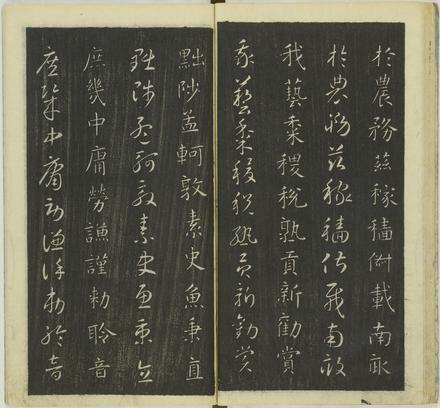 於農務茲稼穡俶載南畝
於農務茲稼穡俶載南畝
我藝黍稷稅熟貢新勸賞
我藝黍稷稅熟貢新勸賞
黜陟孟軻敦素史魚秉直
黜陟孟軻敦素史魚秉直
庶幾中庸勞謙謹勅聆音
庶幾中庸勞謙謹勅聆音